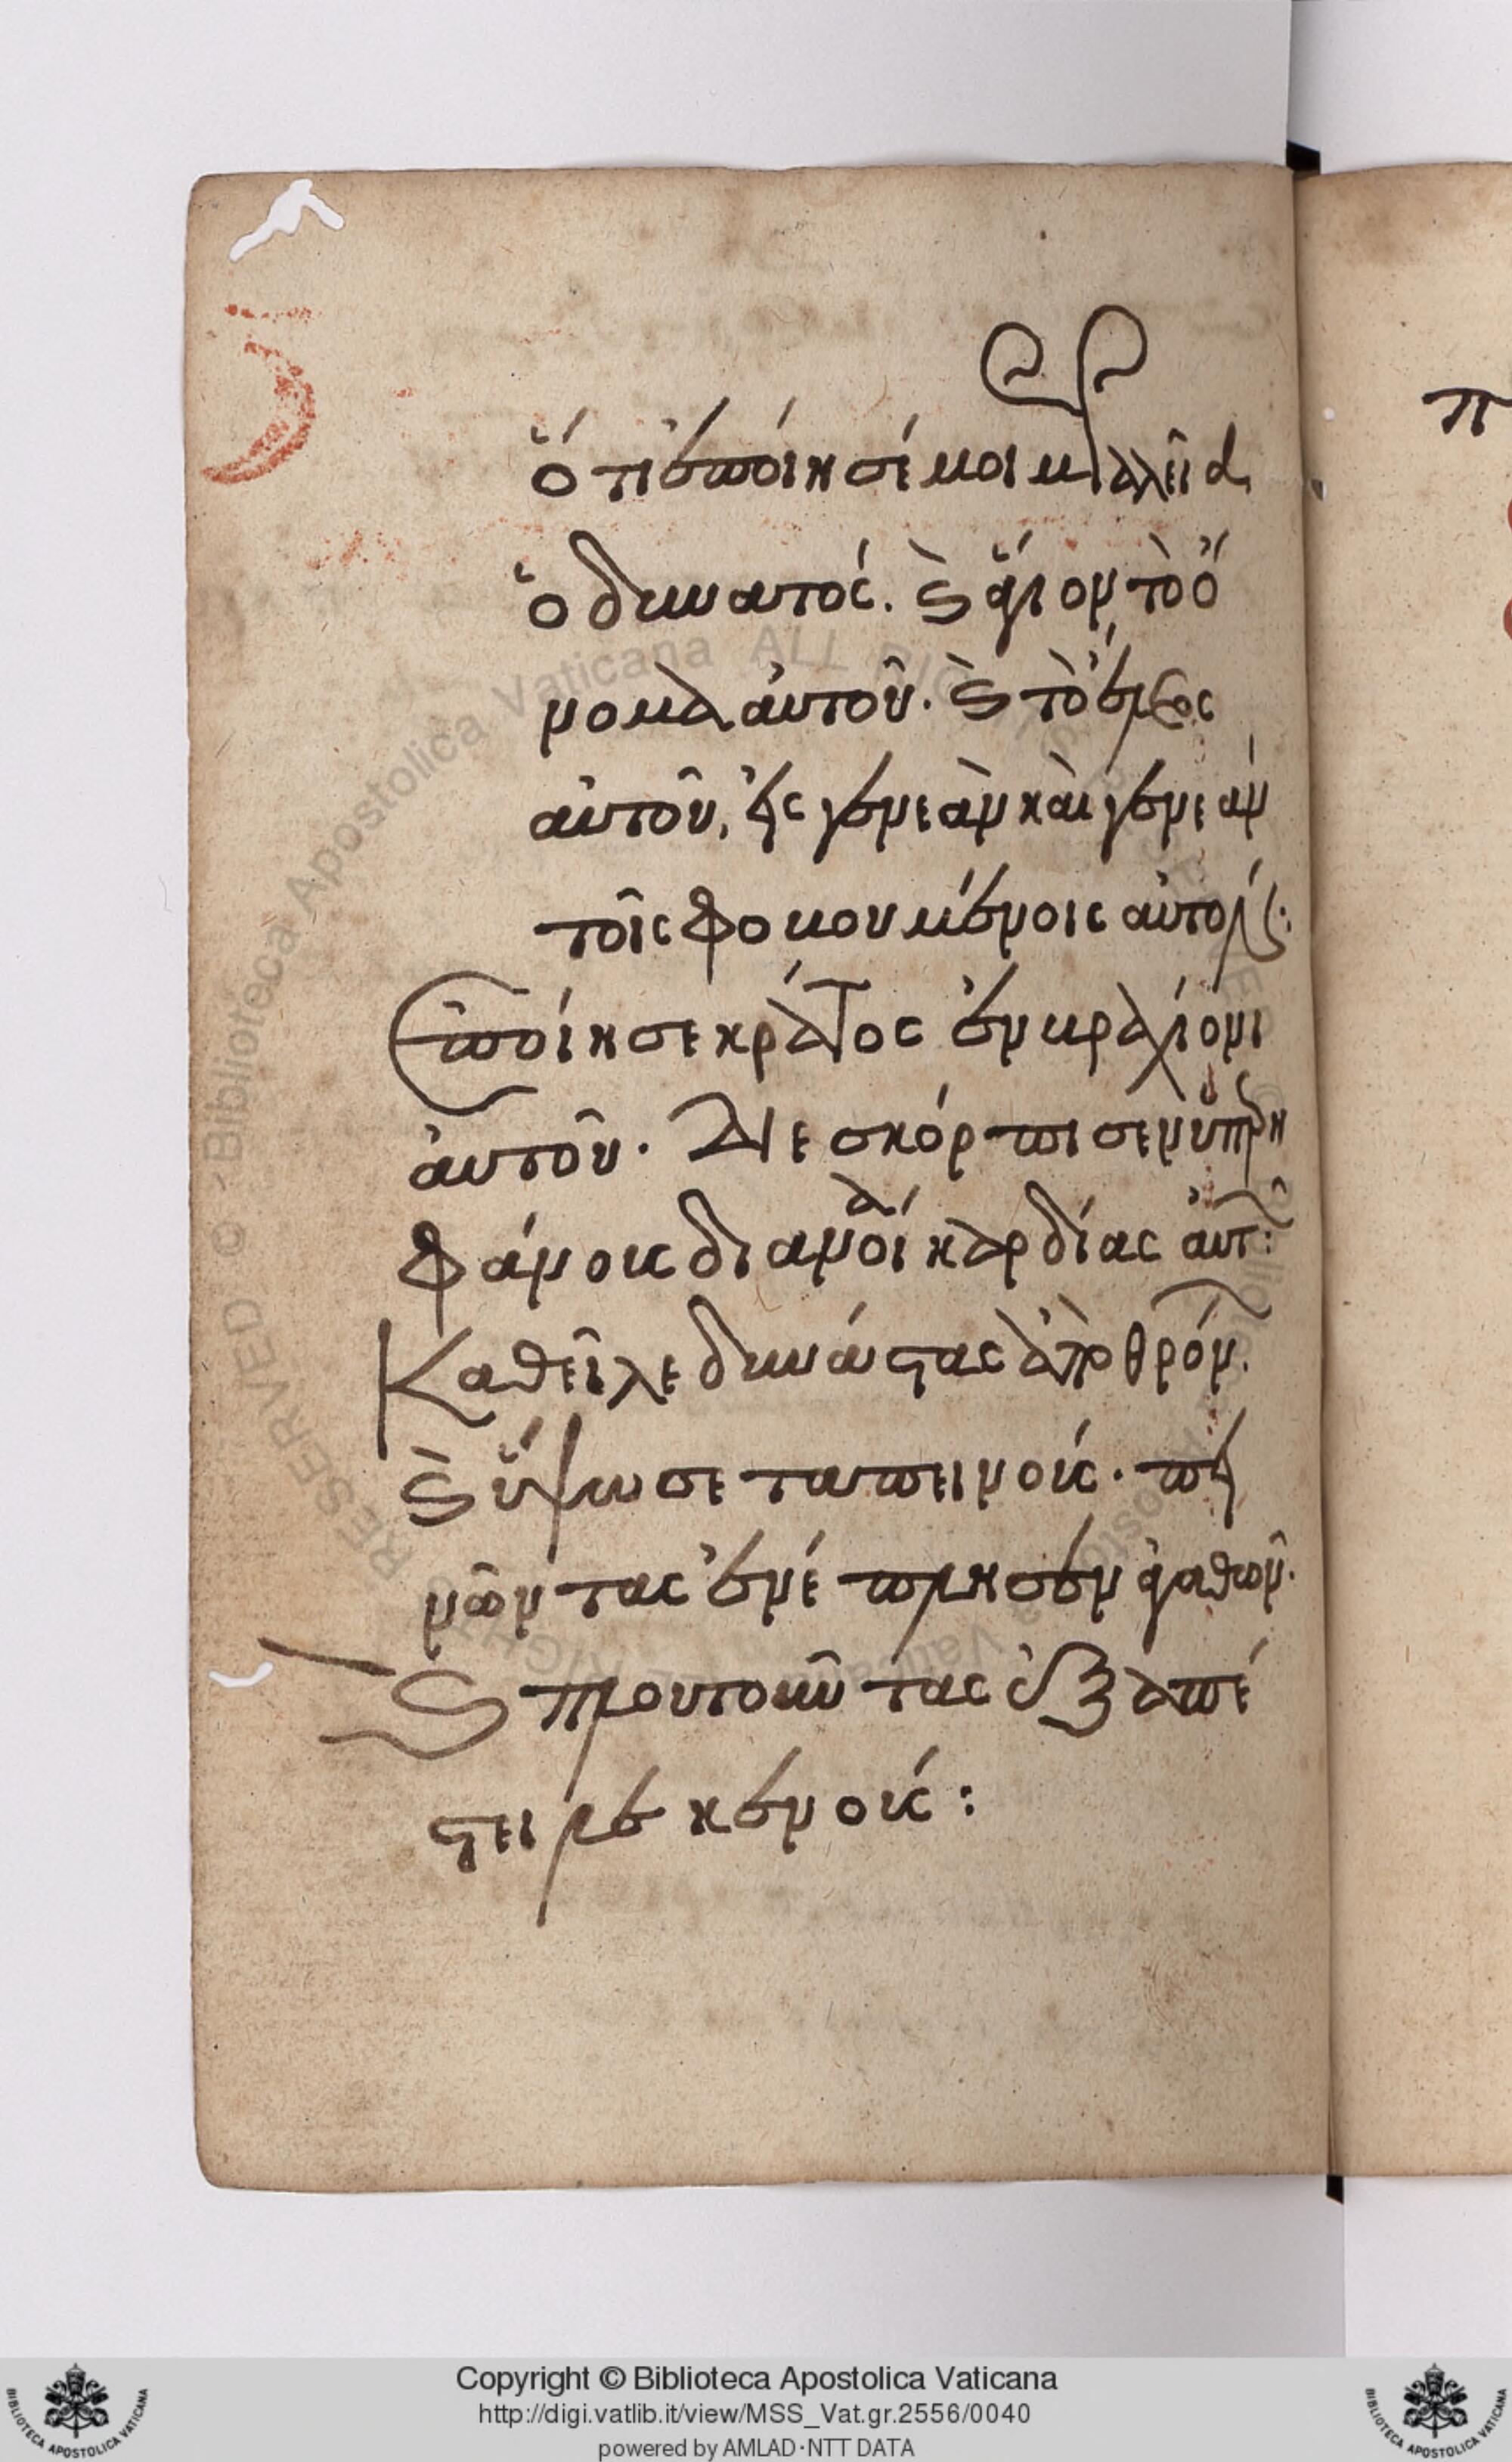 ὅτι ἐποίησέ μοι μεγαλεῖα
ὁ δυνατός. καὶ ἅγιον τὸ ὄ
νομα αὐτοῦ. καὶ τὸ ἔλεος
αὐτοῦ, εἰς γενεὰν καὶ γενεὰν
τοῖς φοβουμένοις αὐτόν:
Ἐποίησε κράτος ἐν βραχίονι
αὐτοῦ. Διεσκόρπισεν ὑπερη
φάνους διανοίᾳ καρδίας αὐτ:
Καθεῖλε δυνάστας ἀπὸ θρόν.
καὶ ὕψωσε ταπεινούς. πει
νῶντας ἐνέπλησεν ἀγαθῶν.
καὶ πλουτοῦντας ἐξαπέ
στειλε κενούς:
π
Copyright © Biblioteca Apostolica Vaticana
http://digi.vatlib.it/view/MSS_Vat.gr.2556/0040
powered by AMLAD·NTT DATA